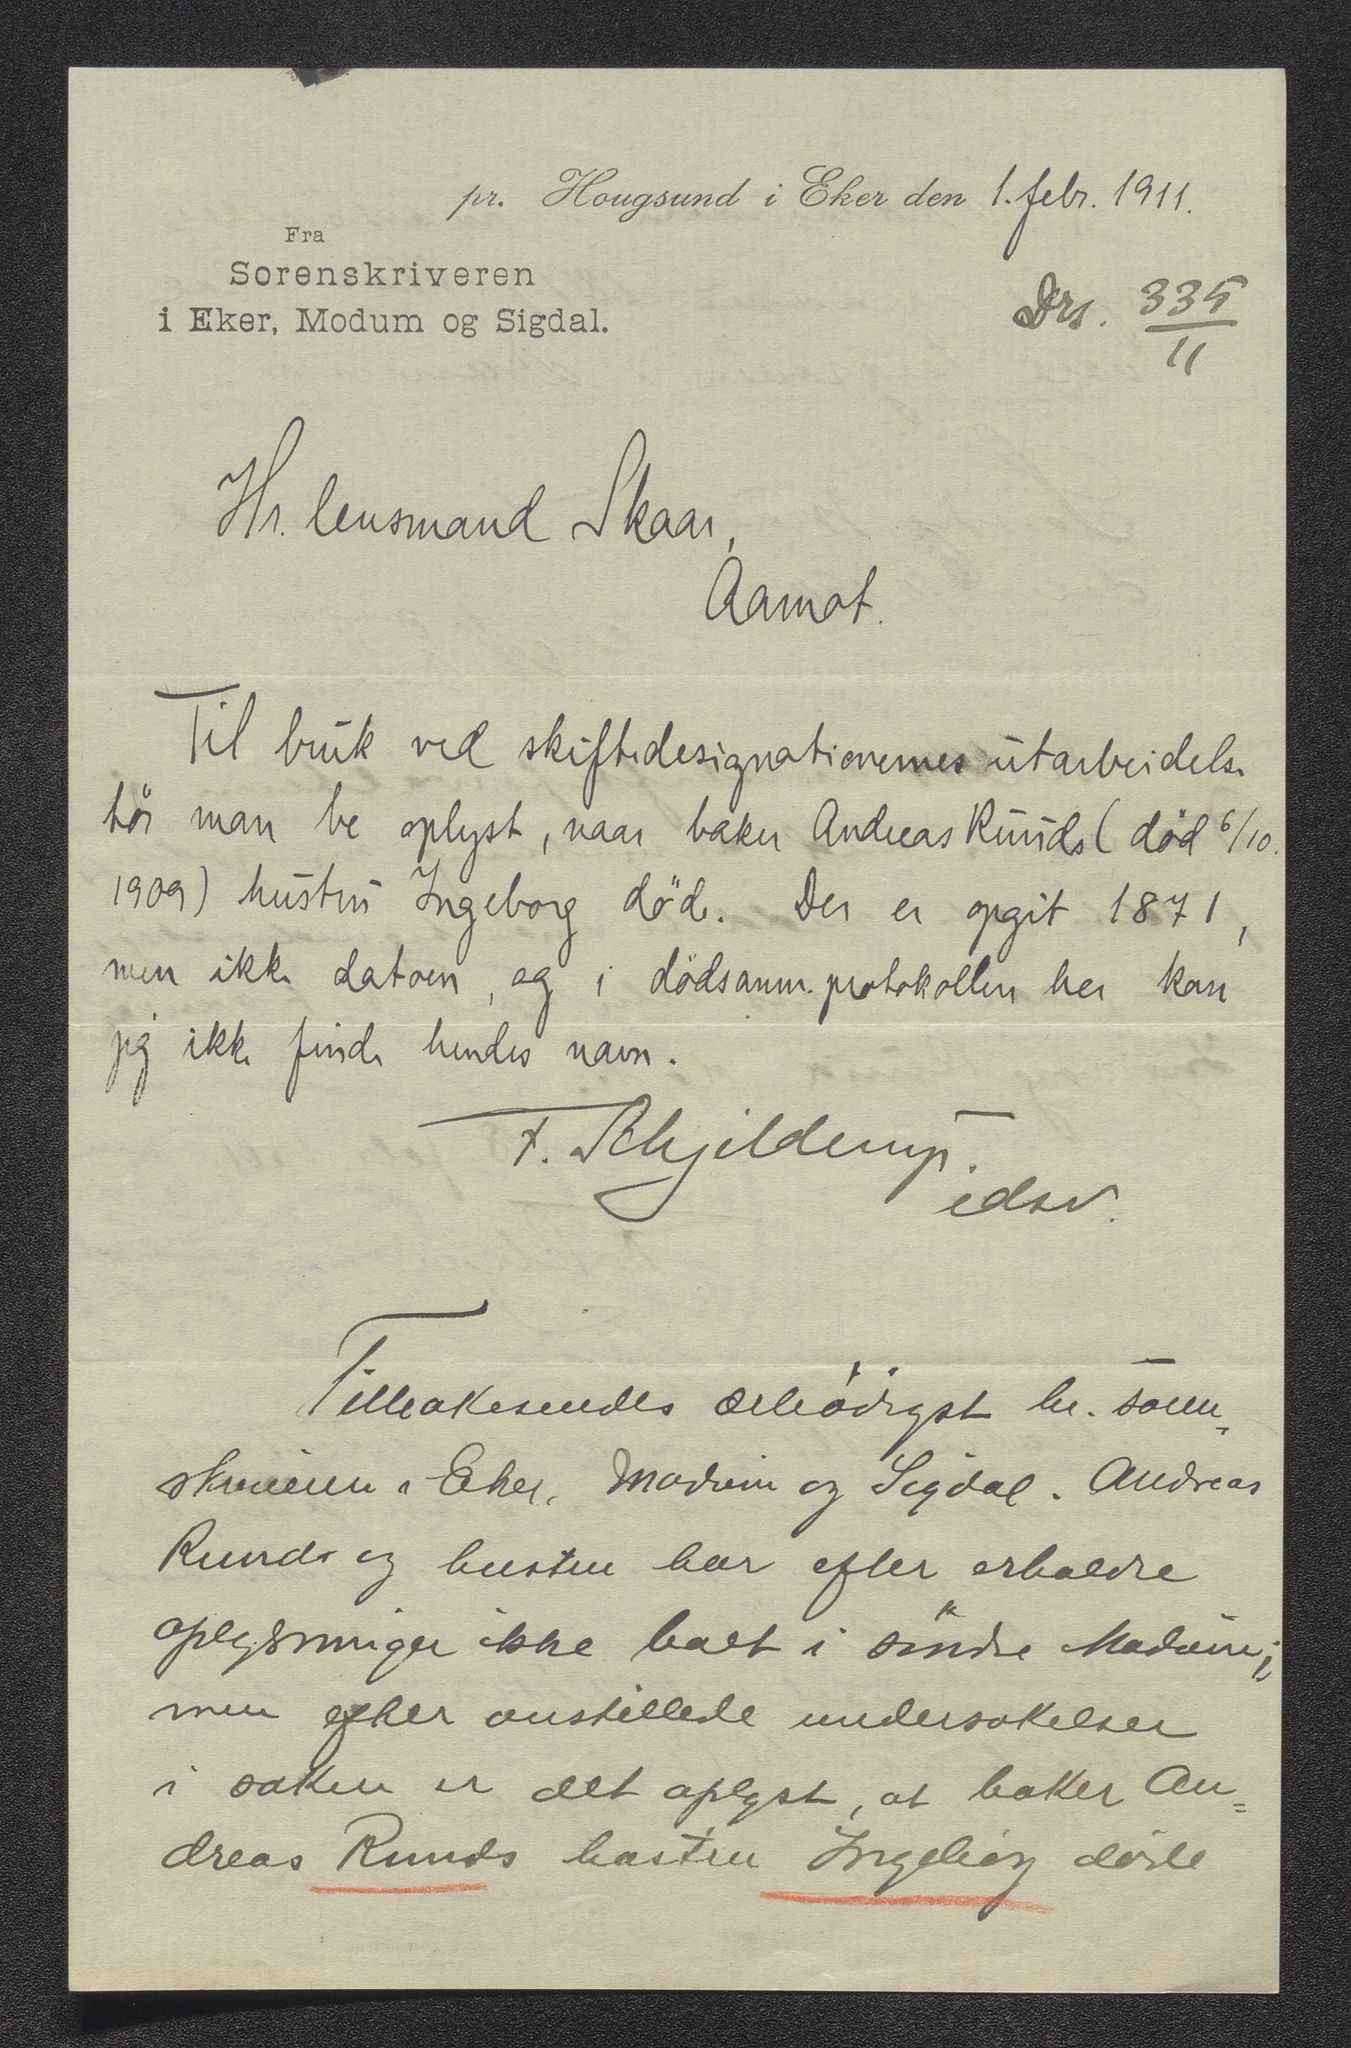 pr. Hougsund i Eker den 1. febr. 1911.
Fra
Sorenskriveren
i Eker, Modum og Sigdal.
Drs. 335/11
Hr. lensmand Skaar,
Aamot.
Til bruk ved skiftedesignationernes utarbeidelse
bør man be oplyst, naar baker Andreas Ruuds (død 6/10.
1909) hustru Ingeborg døde. Der er opgit 1871,
men ikke datoen, og i dødsanm.protokollen her kan
jeg ikke finde hendes navn.
F. Schjelderup.
edsv.
Tilbakesendes ærbødigst hr. soren-
skriveren i Eker, Modum og Sigdal. Andreas
Ruuds og hustru har efter erholdte
oplysninger ikke boet i søndre Modum;
men efter anstillede undersøkelser
i saken er det oplyst, at baker An=
dreas Ruuds hustru Ingeborg døde